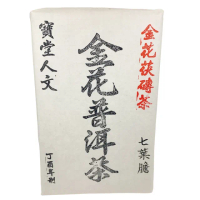 金花茯磚茶
七葉膽
金花普洱茶
寶堂人文
丁酉年制